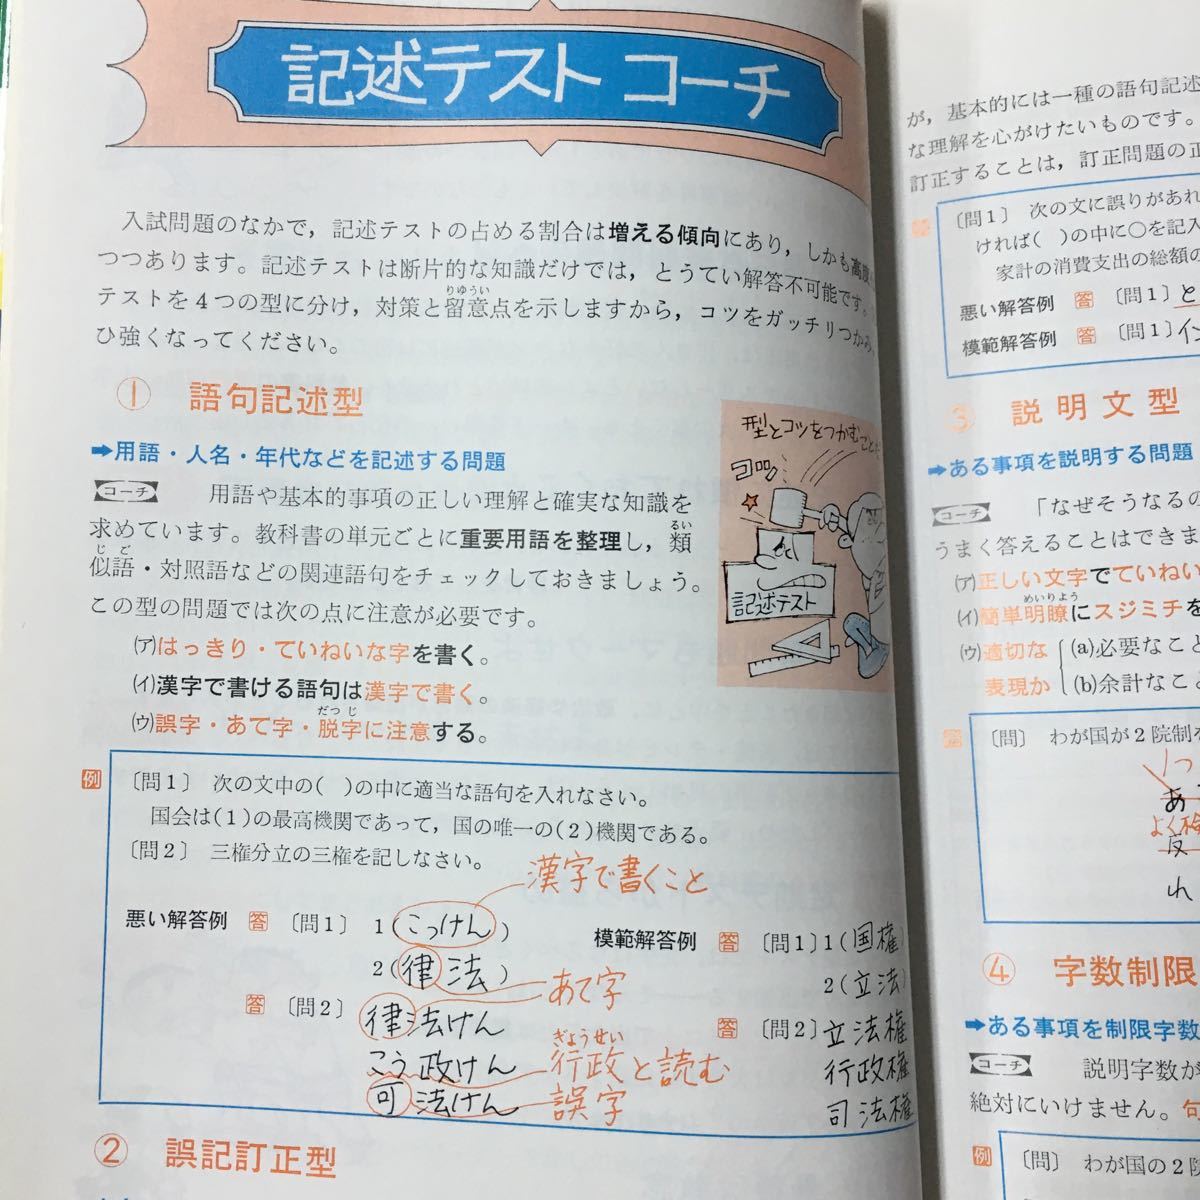 記述テスト コーチ
入試問題のなかで，記述テストの占める割合は増える傾向にあり，しかも高度
つつあります。記述テストは断片的な知識だけでは，とうてい解答不可能です。
りゅうい
テストを4つの型に分け，対策と留意点を示しますから，コツをガッチリつかみ，
ひ強くなってください。
① 語句記述型
➡用語・人名・年代などを記述する問題
コーチ 用語や基本的事項の正しい理解と確実な知識を
求めています。教科書の単元ごとに重要用語を整理し，類
るい
じご
似語・対照語などの関連語句をチェックしておきましょう。
この型の問題では次の点に注意が必要です。
(ア)はっきり・ていねいな字を書く。
(イ)漢字で書ける語句は漢字で書く。
だつじ
(ウ)誤字・あて字・脱字に注意する。
型とコツをつかむ
コツ
記述テスト
例 〔問1〕 次の文中の( )の中に適当な語句を入れなさい。
国会は(1)の最高機関であって，国の唯一の(2)機関である。
〔問2〕 三権分立の三権を記しなさい。
漢字で書くこと
悪い解答例 答 〔問1〕 1(こっけん)
2(律法)
あて字
答 〔問2〕 律法けん
こう政けん
ぎょうせい
行政と読む
可法けん
誤字
模範解答例 答 〔問1〕1(国権)
2(立法)
答 〔問2〕立法権
行政権
司法権
② 誤記訂正型
が，基本的には一種の語句記述
な理解を心がけたいものです。
訂正することは，訂正問題の正
〔問1〕 次の文に誤りがあれ
ければ( )の中に○を記入
家計の消費支出の総額の
悪い解答例 答 〔問1〕と
模範解答例 答 〔問1〕イン
③ 説明文型
➡ある事項を説明する問題
コーチ 「なぜそうなるの
うまく答えることはできま
(ア)正しい文字でていねい
めいりょう
(イ)簡単明瞭にスジミチを
(ウ)適切な表現か
(a)必要なこと
(b)余計なこと
〔問〕 わが国が2院制を
1つ
あ
よく検
反
れ
④ 字数制限
➡ある事項を制限字数
コーチ 説明字数が
絶対にいけません。句
例 〔問〕 わが国の2院